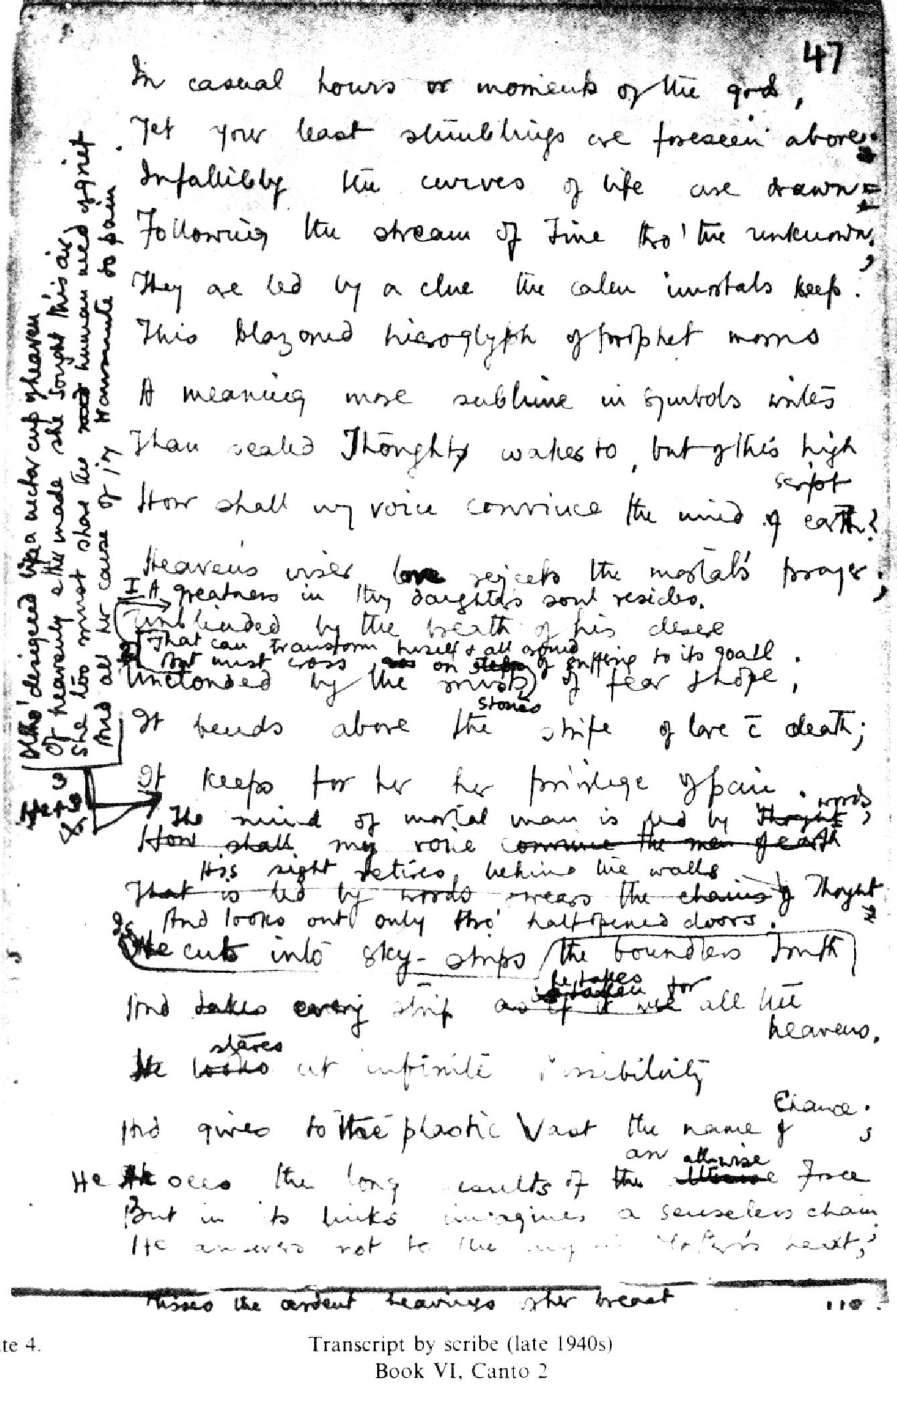 47
In casual hours or moments of the gods,
Yet your least stumblings are foreseen above.
Infallibly the curves of life are drawn
Following the stream of Time thro' the unknown;
They are led by a clue the calm immortals keep.
This blazoned hieroglyph of prophet morns
A meaning more sublime in symbols writes
Than sealed Thought wakes to, but of this high
script
How shall my voice convince the mind of earth?
Heaven's wiser love rejects the mortal's prayer;
I A greatness in thy daughter's soul resides.
Unblinded by the breath of his desire
That can transform herself & all around
But must cross on stones of suffering to its goal.
Unclouded by the mists of fear & hope,
It bends above the strife of love c̄ death;
It keeps for her her privilege of pain.
The mind of mortal man is led by words,
How shall my voice convince the men of earth
His sight retires behind the walls of Thought
That is led by words wears the chains
And looks out only thro' half opened doors.
He cuts into sky-strips the boundless Truth
And takes every strip as if it were all the
heavens.
He stares at infinite possibility
And gives to the plastic Vast the name of
Chance;
He sees the long results of an all-wise Force
But in its links imagines a senseless chain
He answers not to the
Misses the ardent heavings of her breast
110
Altho' designed like a nectar cup of heaven
Of heavenly ether made she sought this air,
She too must share the human need of grief
And all her cause of joy transmute to pain.
te 4.
Transcript by scribe (late 1940s)
Book VI, Canto 2